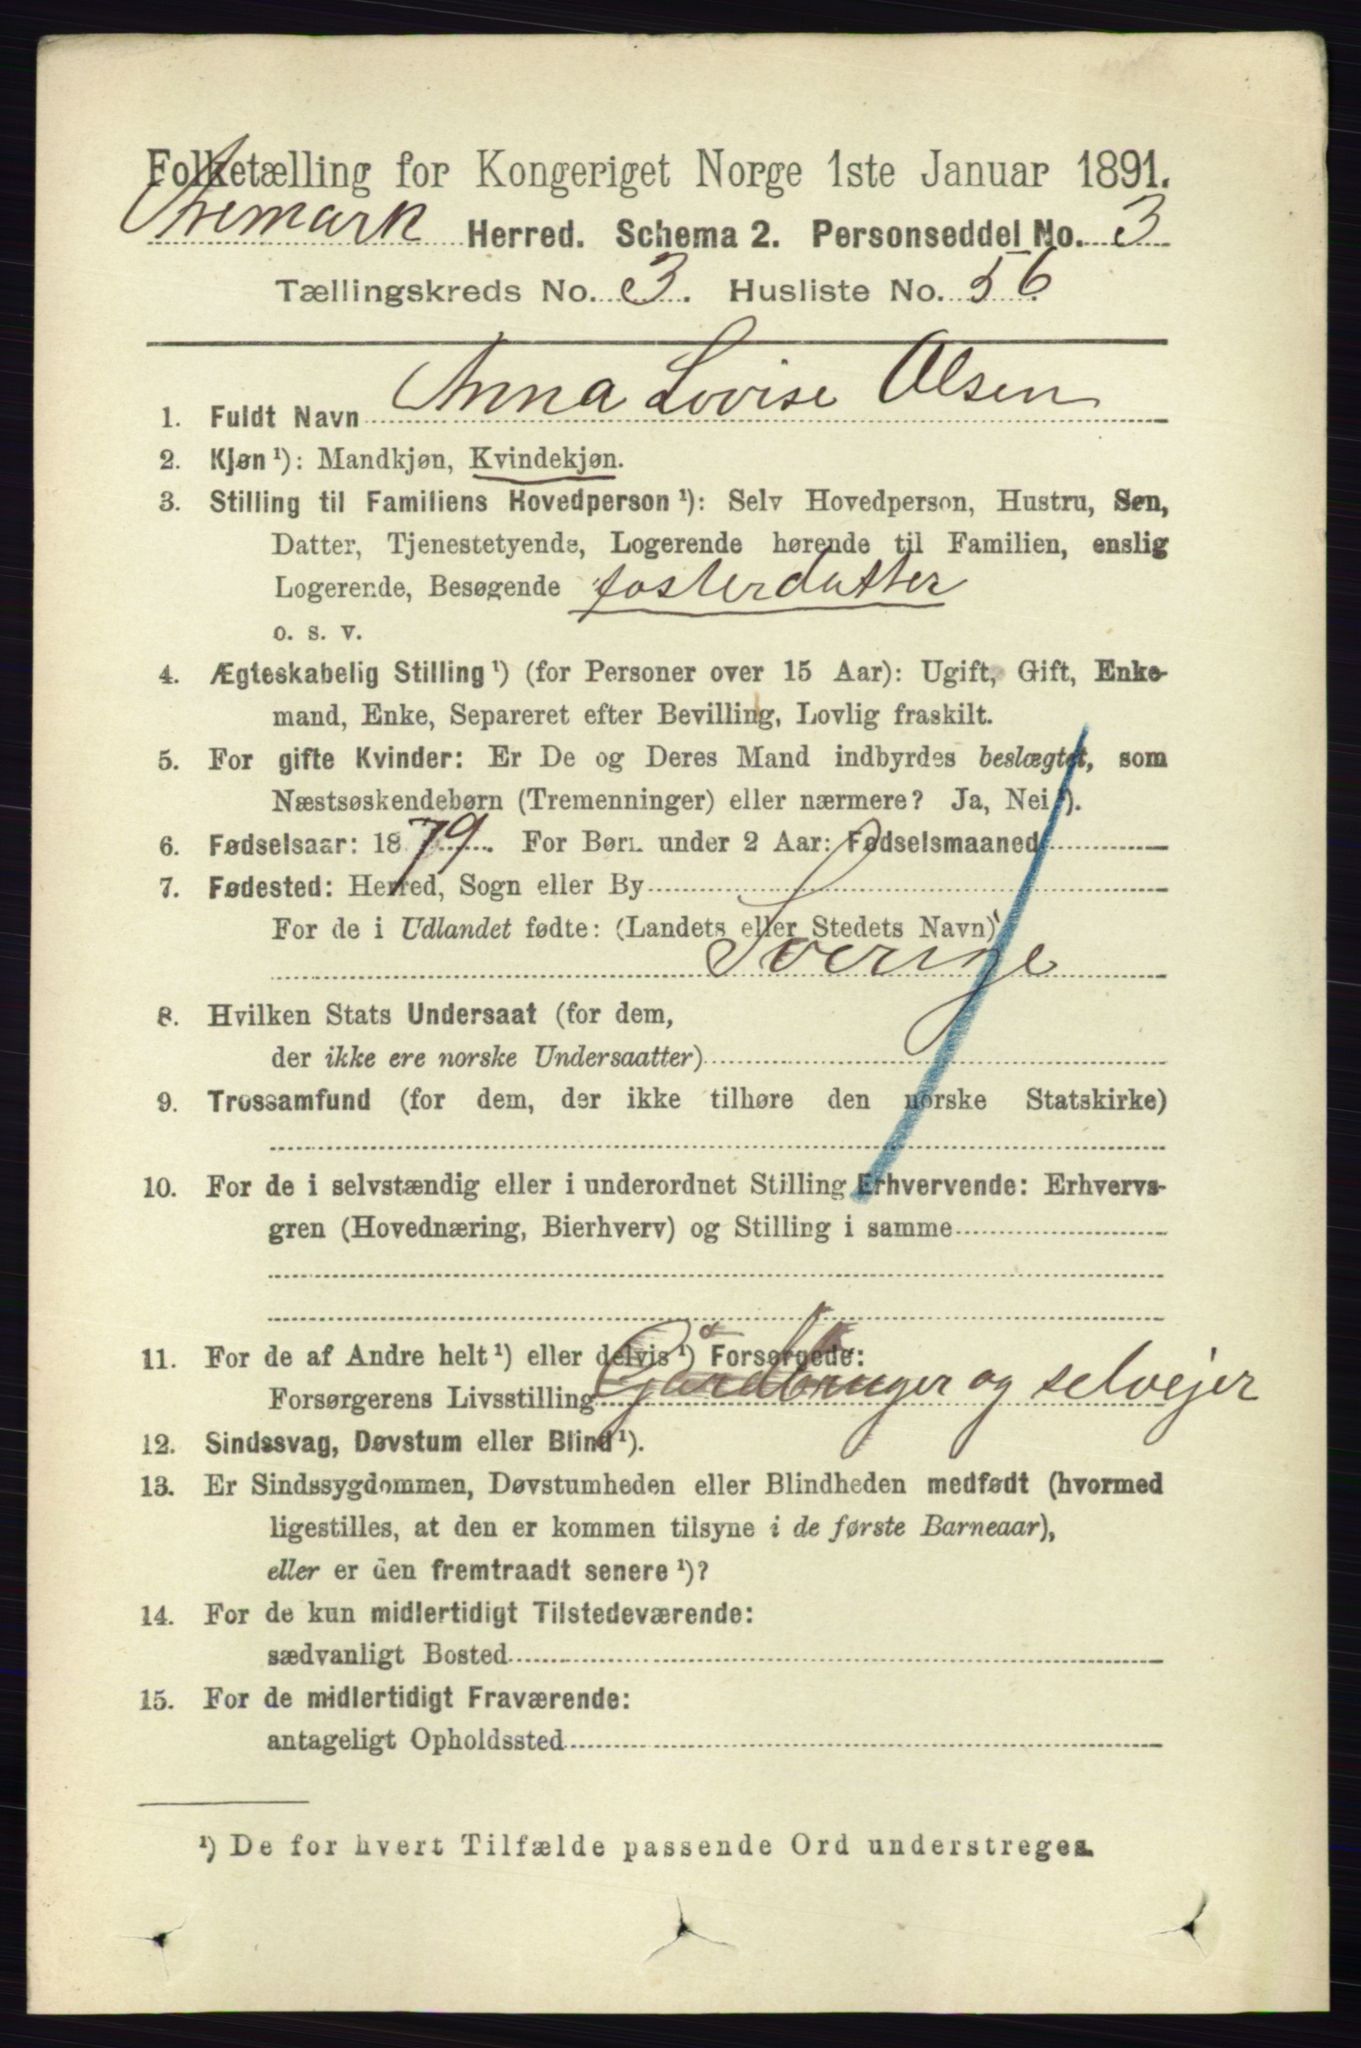 Folketælling for Kongeriget Norge 1ste Januar 1891.
Aremark Herred. Schema 2. Personseddel No. 3
Tællingskreds No. 3. Husliste No. 56
1. Fuldt Navn Anna Lovise Olsen
2. Kjøn ¹): Mandkjøn, Kvindekjøn.
3. Stilling til Familiens Hovedperson ¹): Selv Hovedperson, Hustru, Søn,
Datter, Tjenestetyende, Logerende hørende til Familien, enslig
Logerende, Besøgende fosterdatter
o. s. v.
4. Ægteskabelig Stilling ¹) (for Personer over 15 Aar): Ugift, Gift, Enke-
mand, Enke, Separeret efter Bevilling, Lovlig fraskilt.
5. For gifte Kvinder: Er De og Deres Mand indbyrdes beslægtet, som
Næstsøskendebørn (Tremenninger) eller nærmere? Ja, Nei ¹).
6. Fødselsaar: 1879. For Børn under 2 Aar: Fødselsmaaned
7. Fødested: Herred, Sogn eller By
For de i Udlandet fødte: (Landets eller Stedets Navn)
Sverige
8. Hvilken Stats Undersaat (for dem,
der ikke ere norske Undersaatter)
9. Trossamfund (for dem, der ikke tilhøre den norske Statskirke)
10. For de i selvstændig eller i underordnet Stilling Erhvervende: Erhvervs-
gren (Hovednæring, Bierhverv) og Stilling i samme
11. For de af Andre helt ¹) eller delvis ¹) Forsørgede:
Forsørgerens Livsstilling Gårdbruger og selvejer
12. Sindssvag, Døvstum eller Blind ¹).
13. Er Sindssygdommen, Døvstumheden eller Blindheden medfødt (hvormed
ligestilles, at den er kommen tilsyne i de første Barneaar),
eller er den fremtraadt senere ¹)?
14. For de kun midlertidigt Tilstedeværende:
sædvanligt Bosted
15. For de midlertidigt Fraværende:
antageligt Opholdssted
¹) De for hvert Tilfælde passende Ord understreges.